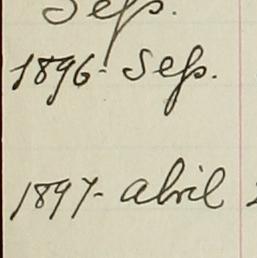 Sep.
1896- Sep.
1897- abril